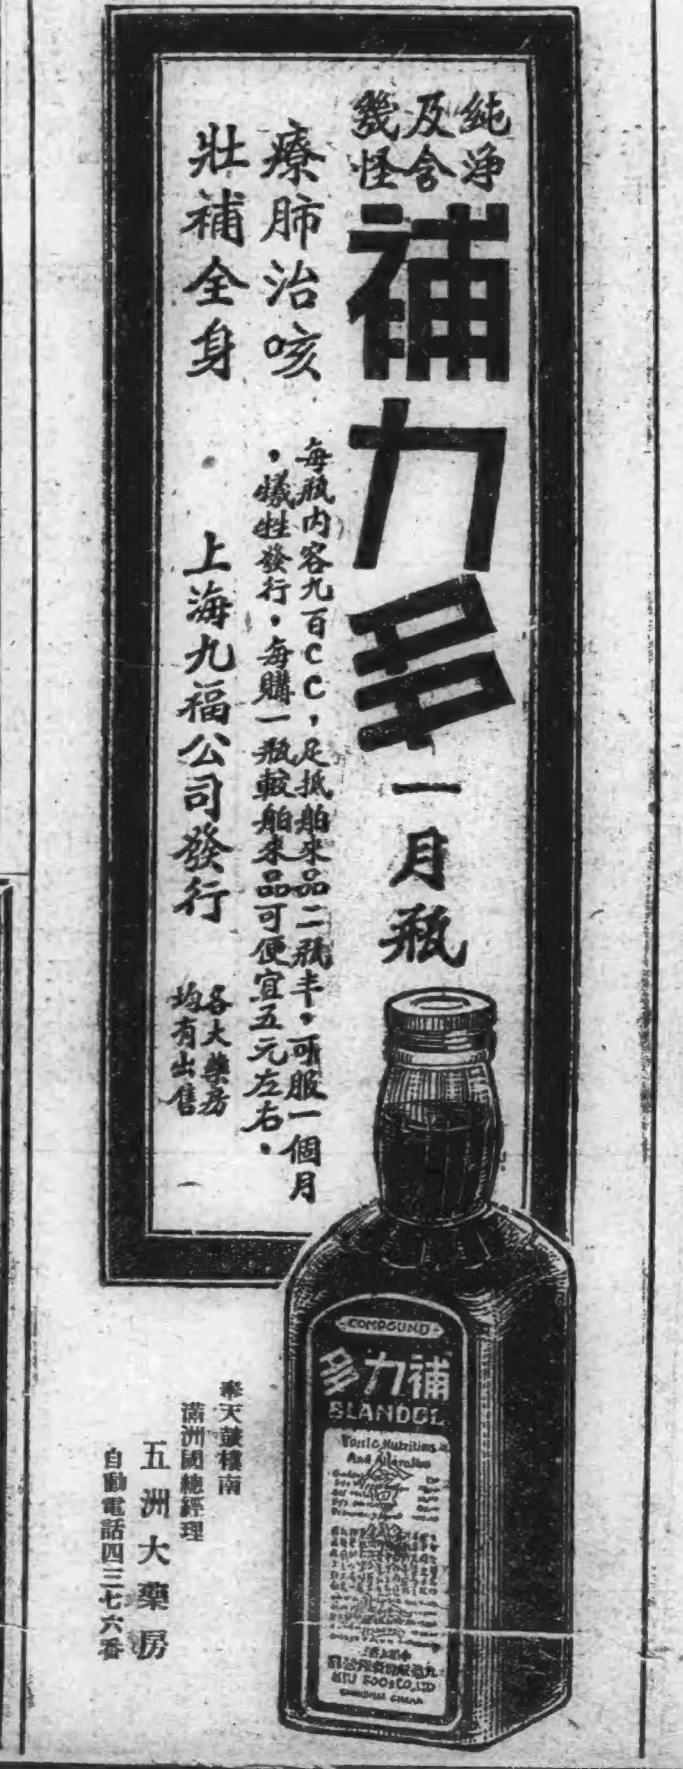 純淨
及含
幾怪
補力多
一月瓶
療肺治咳
壯補全身
每瓶內容九百CC，足抵舶來品二瓶半，可服一個月
，犧牲發行，每購一瓶較舶來品可便宜五元左右。
上海九福公司發行
各大藥房
均有出售
COMPOUND
補力多
BLANDOL
Tonic Nutritive
And Alterative
FOODS CO., LTD
SHANGHAI CHINA
奉天鼓樓南
滿洲國總經理
五洲大藥房
自動電話四三七六番